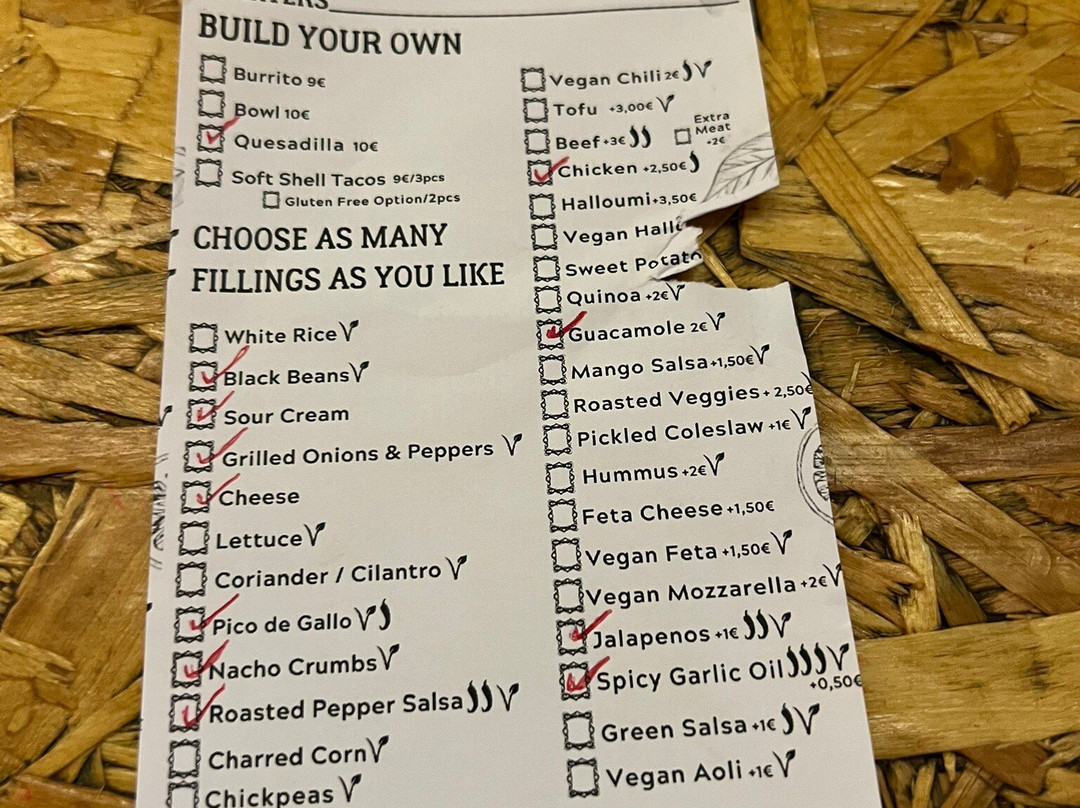 BUILD YOUR OWN
Burrito 9€
Bowl 10€
Quesadilla 10€
Soft Shell Tacos 9€/3pcs
Gluten Free Option/2pcs
CHOOSE AS MANY
FILLINGS AS YOU LIKE
White Rice
Black Beans
Sour Cream
Grilled Onions & Peppers
Cheese
Lettuce
Coriander / Cilantro
Pico de Gallo
Nacho Crumbs
Roasted Pepper Salsa
Charred Corn
Chickpeas
Vegan Chili 2€
Tofu +3,00€
Beef +3€
Extra
Meat
+2€
Chicken +2,50€
Halloumi +3,50€
Vegan
Sweet
Quinoa +2€
Guacamole 2€
Mango Salsa +1,50€
Roasted Veggies + 2,50€
Pickled Coleslaw +1€
Hummus +2€
Feta Cheese +1,50€
Vegan Feta +1,50€
Vegan Mozzarella +2€
Jalapenos +1€
Spicy Garlic Oil
+0,50€
Green Salsa +1€
Vegan Aoli +1€